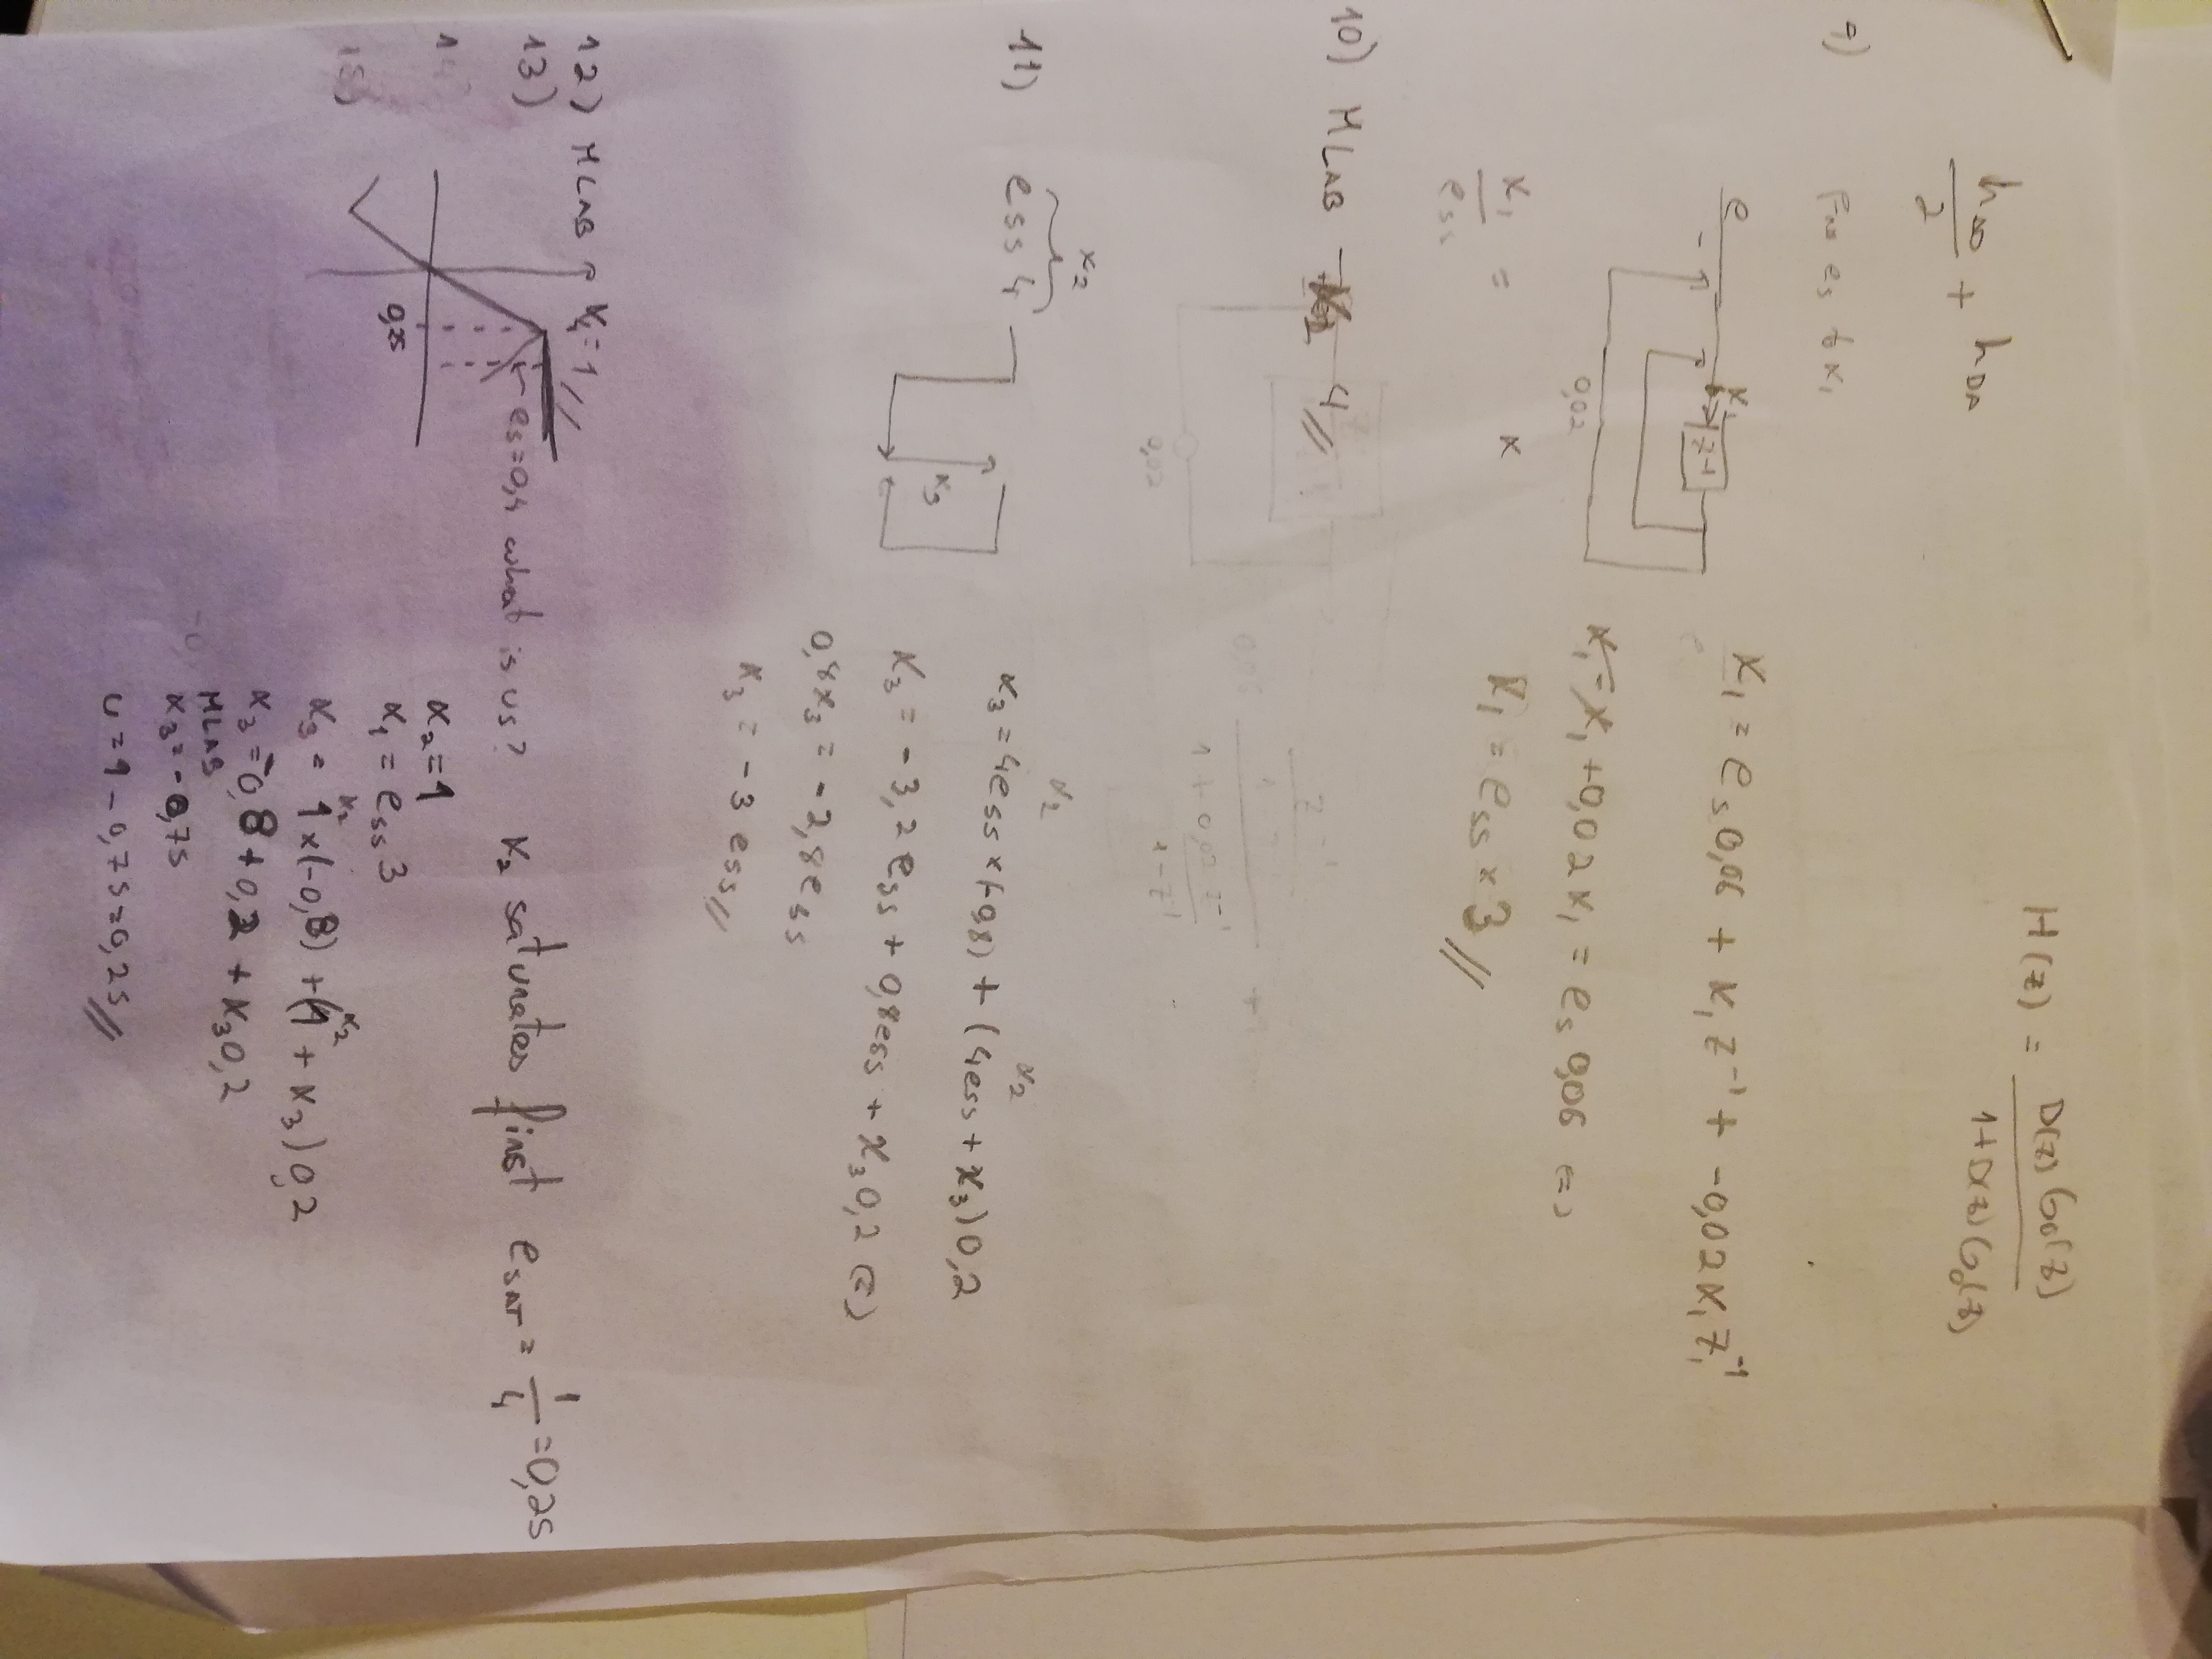 H(z) = D(z) G0(z) / 1+D(z) G0(z)
hAD / 2 + hDA
9) es to x1
e x1 z-1
-
0,02
x1 = es 0,06 + x1 z-1 + -0,02 x1 z-1
x1 - x1 + 0,02 x1 = es 0,06 <=>
x1 / ess = x
x1 = ess × 3 //
10) MLAB 4 //
0,06 z-1 / 1 + 0,02 z-1 / 1-z-1
0,02
11) x2
ess 4
x3
x2 x2
x3 = 4ess × (-0,8) + (4ess + x3) 0,2
x3 = -3,2 ess + 0,8ess + x3 0,2 (=)
0,8x3 = -2,8ess
x3 = -3 ess //
12) MLAB x4 = 1 //
13) es=0,4 what is us? x2 saturates first eSAT = 1/4 = 0,25
14)
0,25
15)
x2 = 1
x1 = ess 3
x2 x2
x3 = 1 × (-0,8) + (1 + x3) 0,2
x3 = -0,8 + 0,2 + x3 0,2
MLAB
x3 = -0,75
u = 1 - 0,75 = 0,25 //